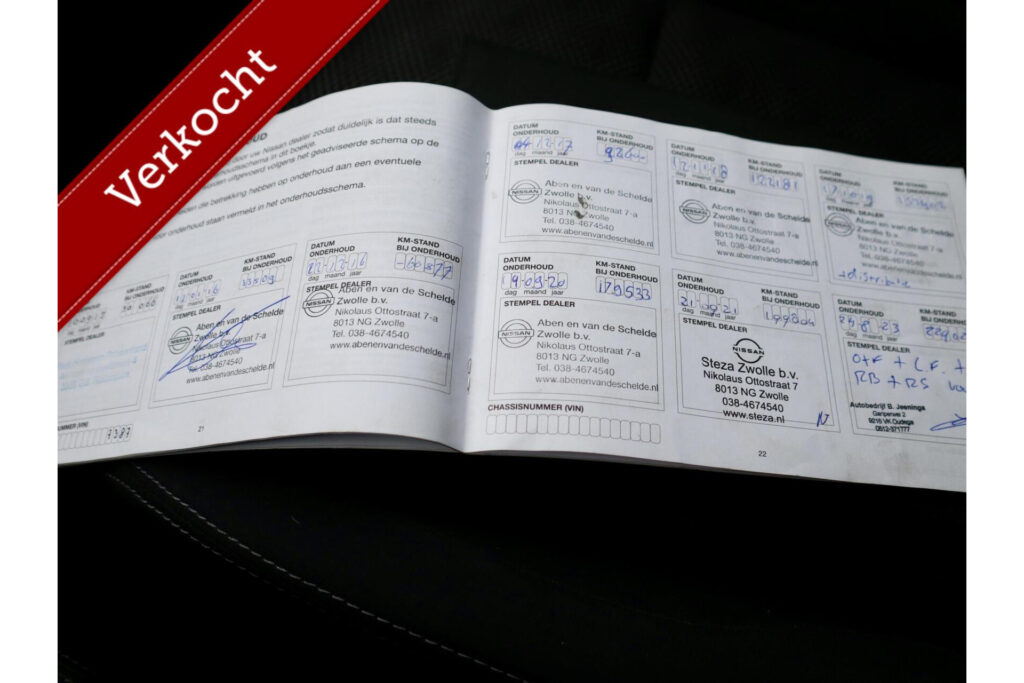 Verkocht
door uw Nissan dealer zodat duidelijk is dat steeds
uitgevoerd volgens het geadviseerde schema op de
in dit boekje.
die betrekking hebben op onderhoud aan een eventuele
onderhoud staan vermeld in het onderhoudsschema.
DATUM
KM-STAND
BIJ ONDERHOUD
STEMPEL DEALER
DATUM
ONDERHOUD
KM-STAND
BIJ ONDERHOUD
dag maand jaar
STEMPEL DEALER
NISSAN
Aben en van de Schelde
Zwolle b.v.
Nikolaus Ottostraat 7-a
8013 NG Zwolle
Tel. 038-4674540
www.abenenvandeschelde.nl
DATUM
ONDERHOUD
KM-STAND
BIJ ONDERHOUD
22-12-16
dag maand jaar
STEMPEL DEALER
NISSAN
Aben en van de Schelde
Zwolle b.v.
Nikolaus Ottostraat 7-a
8013 NG Zwolle
Tel. 038-4674540
www.abenenvandeschelde.nl
7387
21
DATUM
ONDERHOUD
KM-STAND
BIJ ONDERHOUD
dag maand jaar
STEMPEL DEALER
NISSAN
Aben en van de Schelde
Zwolle b.v.
Nikolaus Ottostraat 7-a
8013 NG Zwolle
Tel. 038-4674540
www.abenenvandeschelde.nl
DATUM
ONDERHOUD
KM-STAND
BIJ ONDERHOUD
122181
dag maand jaar
STEMPEL DEALER
NISSAN
Aben en van de Schelde
Zwolle b.v.
Nikolaus Ottostraat 7-a
8013 NG Zwolle
Tel. 038-4674540
www.abenenvandeschelde.nl
DATUM
ONDERHOUD
KM-STAND
BIJ ONDERHOUD
STEMPEL DEALER
Aben en van de Schelde
Zwolle b.v.
Nikolaus Ottostraat 7-a
8013 NG Zwolle
Tel. 038-4674540
www.abenenvandeschelde.nl
DATUM
ONDERHOUD
KM-STAND
BIJ ONDERHOUD
19-09-20
179533
dag maand jaar
STEMPEL DEALER
NISSAN
Aben en van de Schelde
Zwolle b.v.
Nikolaus Ottostraat 7-a
8013 NG Zwolle
Tel. 038-4674540
www.abenenvandeschelde.nl
DATUM
ONDERHOUD
KM-STAND
BIJ ONDERHOUD
21-09-21
199804
dag maand jaar
STEMPEL DEALER
NISSAN
Steza Zwolle b.v.
Nikolaus Ottostraat 7
8013 NG Zwolle
038-4674540
www.steza.nl
DATUM
ONDERHOUD
KM-STAND
BIJ ONDERHOUD
23-8-23
dag maand jaar
STEMPEL DEALER
O+F + L.F. +
RB + RS
Autobedrijf B. Jeenings
9216 VK Oudega
0512-371777
CHASSISNUMMER (VIN)
22